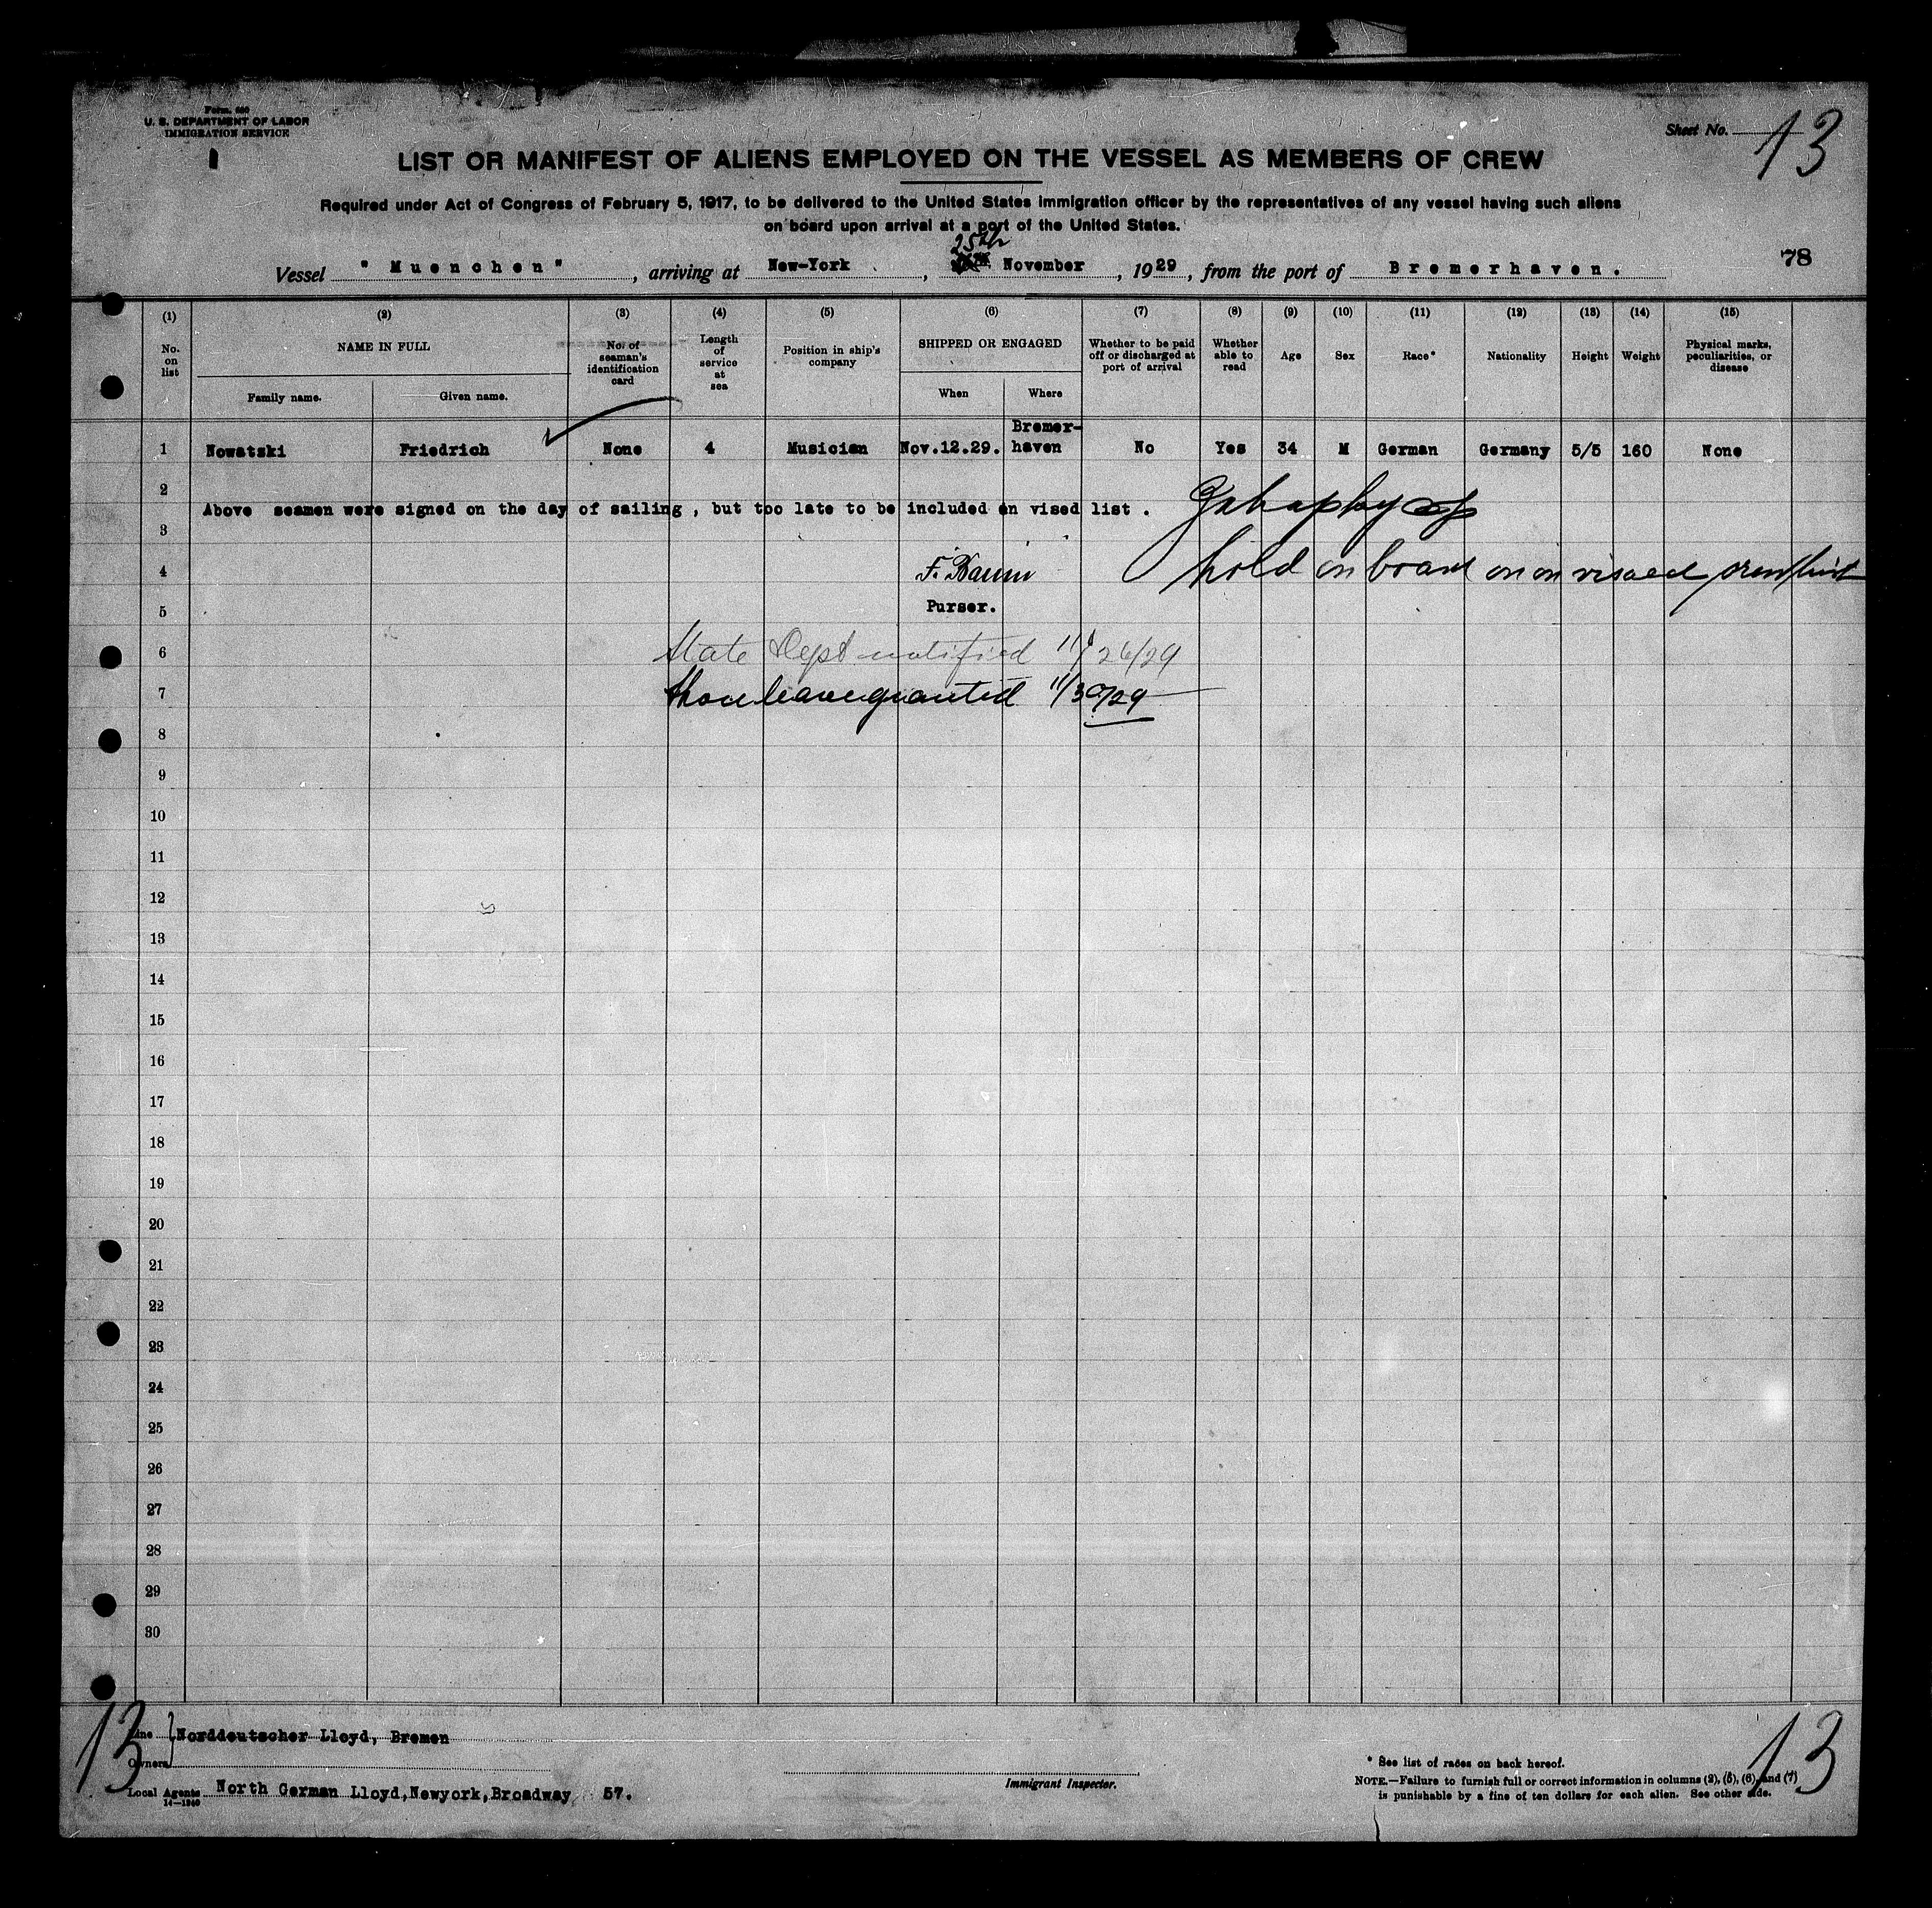 Form 680
U. S. DEPARTMENT OF LABOR
IMMIGRATION SERVICE
Sheet No. 13
LIST OR MANIFEST OF ALIENS EMPLOYED ON THE VESSEL AS MEMBERS OF CREW
Required under Act of Congress of February 5, 1917, to be delivered to the United States immigration officer by the representatives of any vessel having such aliens
on board upon arrival at a port of the United States.
25th
Vessel "Muenchen", arriving at New-York, November, 1929, from the port of Bremerhaven.
78
(1) (2) (3) (4) (5) (6) (7) (8) (9) (10) (11) (12) (13) (14) (15)
No. on list NAME IN FULL Family name. Given name. No. of seaman's identification card Length of service at sea Position in ship's company SHIPPED OR ENGAGED When Where Whether to be paid off or discharged at port of arrival Whether able to read Age Sex Race* Nationality Height Weight Physical marks, peculiarities, or disease
1 Nowatski Friedrich None 4 Musician Nov.12.29. Bremer-haven No Yes 34 M German Germany 5/5 160 None
2
Above seamen were signed on the day of sailing, but too late to be included on vised list.
3
4 F. Baum hold on board on visaed crew list
5 Purser.
6 State Dept notified 11/26/29
7 Shore leave granted 11/30/29
8
9
10
11
12
13
14
15
16
17
18
19
20
21
22
23
24
25
26
27
28
29
30
13
Line Norddeutscher Lloyd, Bremen
Owners
Local Agents North German Lloyd,Newyork,Broadway 57.
14—1240
Immigrant Inspector.
* See list of races on back hereof.
NOTE.—Failure to furnish full or correct information in columns (2), (5), (6), and (7)
is punishable by a fine of ten dollars for each alien. See other side.
13